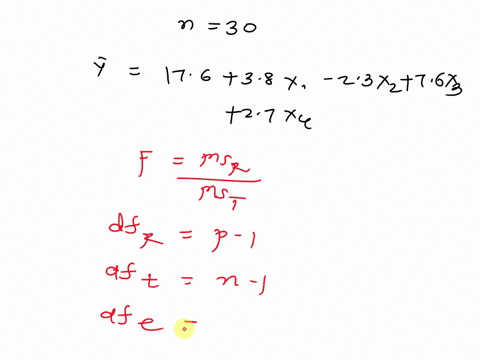 n = 30
Ȳ = 17.6 + 3.8 x₁ - 2.3x₂ + 7.6x₃
+ 2.7 x₄
F = MSR / MST
dfR = p - 1
dft = n - 1
dfe =